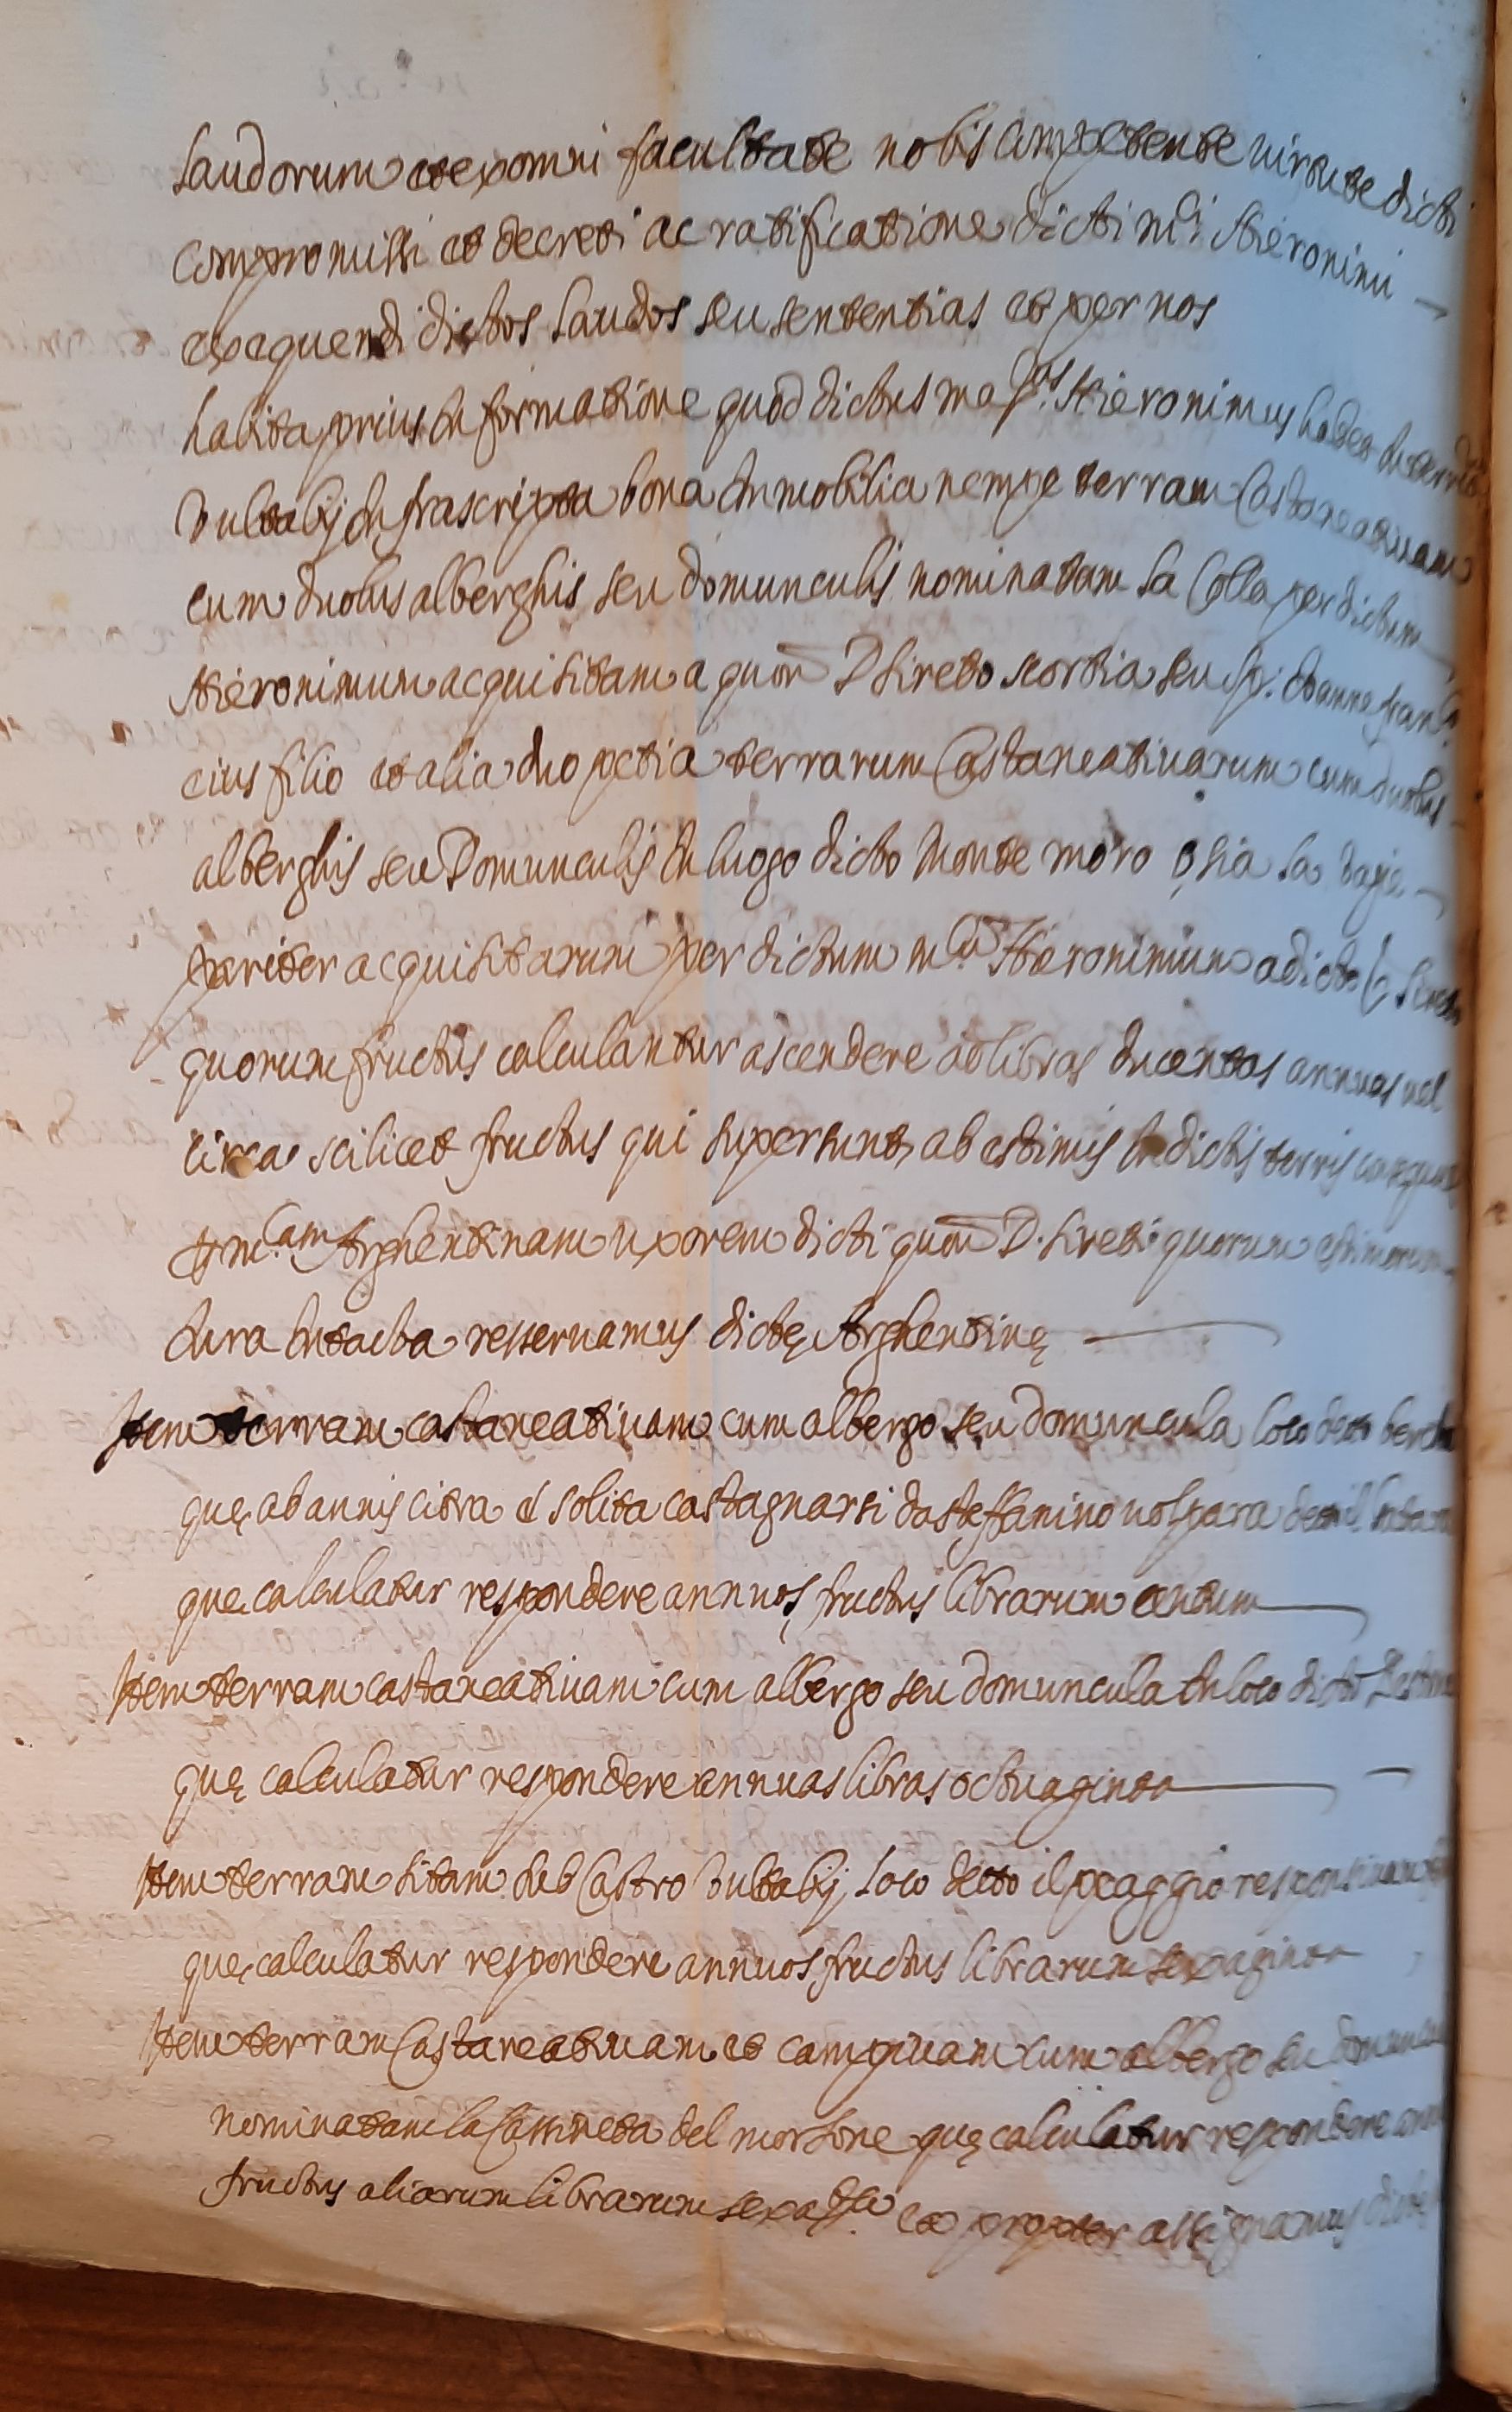 laudorum et ex omni facultate nobis competente virtute dicti
compromissi et decreti ac ratificatione dicti m.ci Hieronimi
exequendi dictos laudos seu sententias et per nos
habita prius informatione quod dictus mag.cus Hieronimus habet in territ.o
Vultabij infrascripta bona immobilia nempe terram Castaneativam
cum duobus alberghis seu domunculis nominatam la Colla per dictum
Hieronimum acquisitam a quon D Sireto scortia seu sp. Joanne Fran.co
eius filio et alia duo petia terrarum Castaneativarum cum duobus
alberghis seu Domunculis in luogo dicto Monte moro ò sia la
pariter acquisitarum per dictum m.cum Hieronimum a dicto q. Sireto
quorum fructus calculantur ascendere ad libras ducentas annuas vel
circa scilicet fructus qui supersunt ab estimis in dictis terris
m.cam Arghentinam uxorem dicti quon D. Sireti quorum estimorum
iura intacta reservamus dictę Arghentinę
Item terram castaneativam cum albergo seu domuncula loco detto
quę ab annis citra è solita castagnarsi da steffanino volpara detto il
quę calculatur respondere annuos fructus librarum centum
Item terram castaneativam cum albergo seu domuncula in loco dicto
quę calculatur respondere annuas libras octuaginta
Item terram sitam sub Castro Vultabij loco detto il poaggio
quę calculatur respondere annuos fructus librarum sexaginta
Item terram Castaneativam et campivam cum albergo seu
nominatam la del morsone quę calculatur respondere
fructus aliarum librarum sexag.ta ea propter assignamus